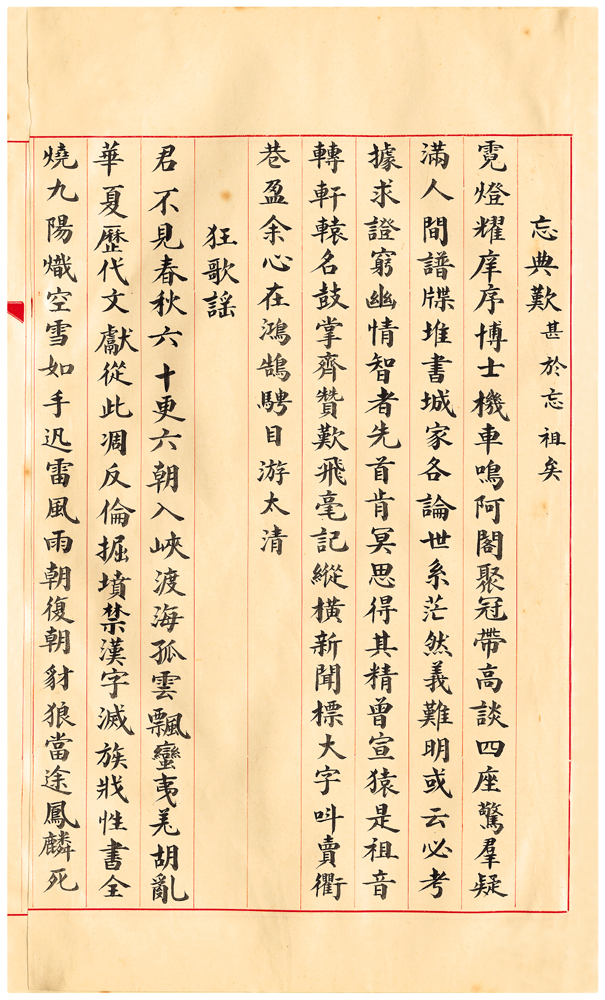 忘典歎 甚於忘祖矣
霓燈耀庠序博士機車鳴阿閣聚冠帶高談四座驚羣疑
滿人間譜牒堆書城家各論世系茫然義難明或云必考
據求證窮幽情智者先首肯冥思得其精曾宣猿是祖音
轉軒轅名鼓掌齊贊歎飛毫記縱橫新聞標大字叫賣衢
巷盈余心在鴻鵠騁目游太清
狂歌謠
君不見春秋六十更六朝入峽渡海孤雲飄蠻夷羌胡亂
華夏歷代文獻從此凋反倫掘墳禁漢字滅族戕性書全
燒九陽熾空雪如手迅雷風雨朝復朝豺狼當途鳳麟死